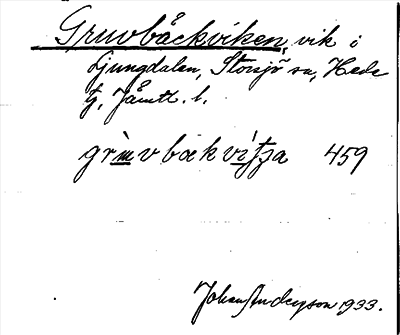 Gruvbäckviken, vik i
Ljungdalen, Storsjö sn, Hede
tg, Jämtl. l.
vbækv 459
Johan Anderson 1933.